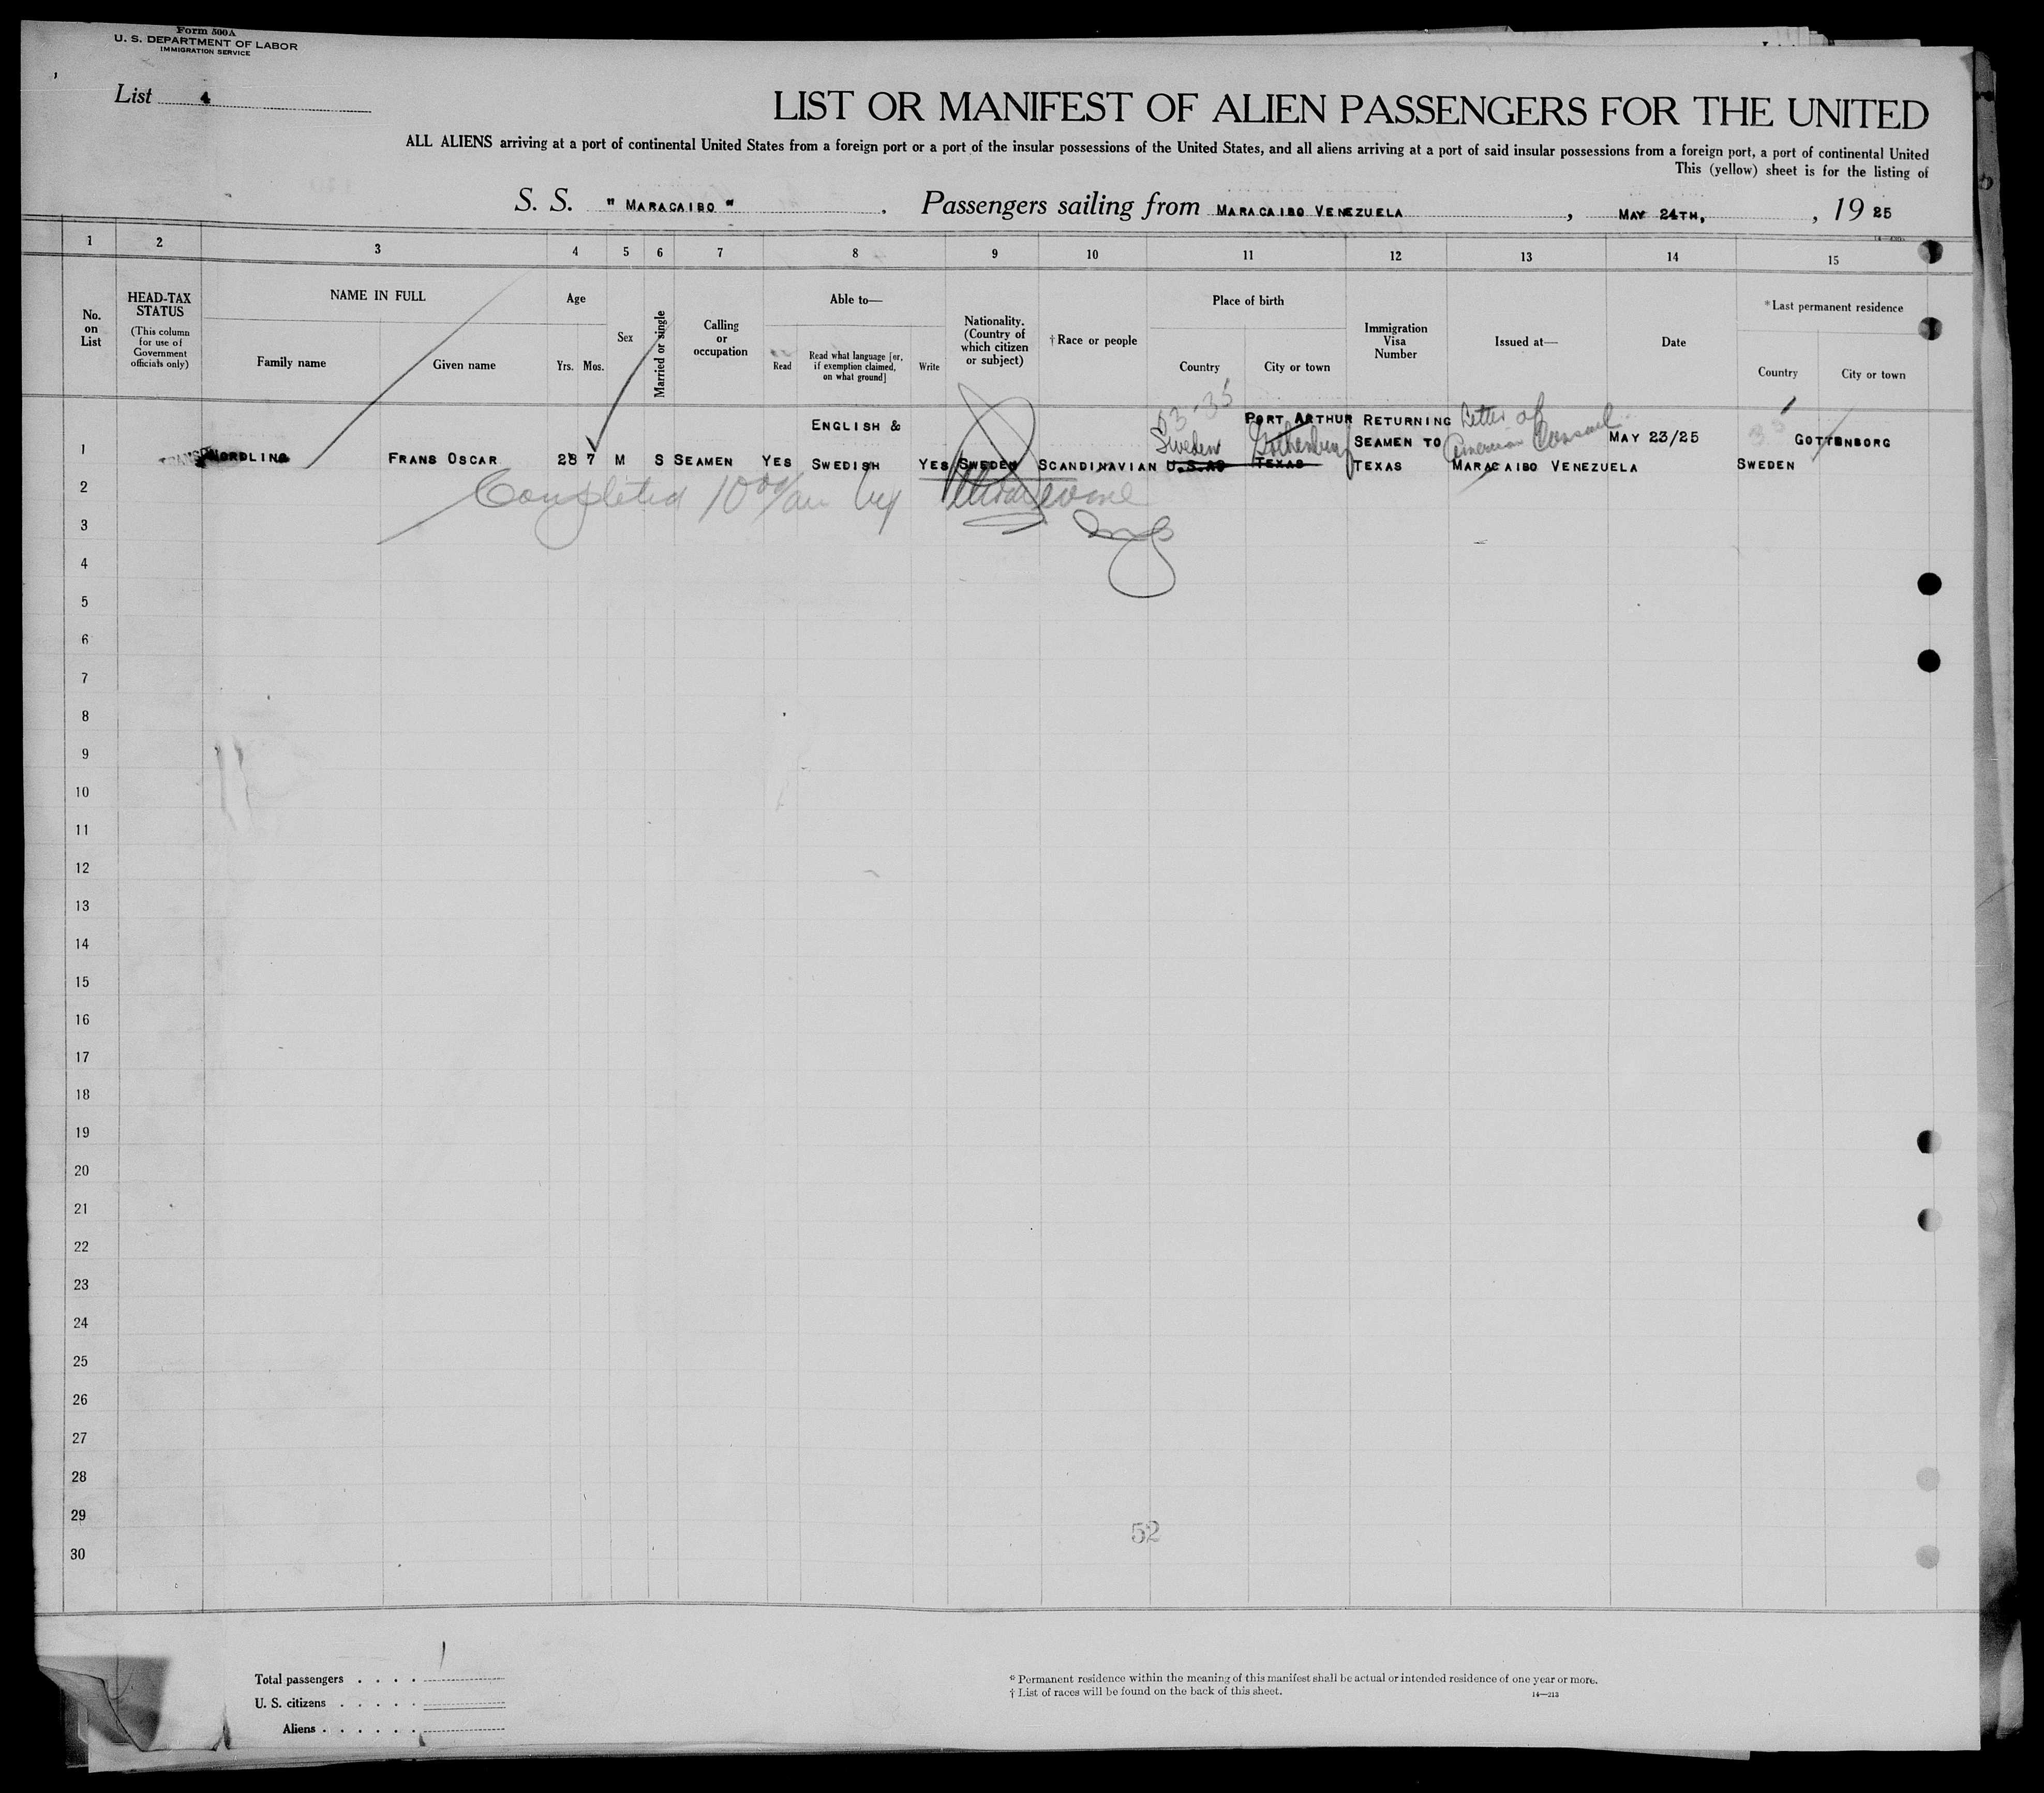 Form 500A
U. S. DEPARTMENT OF LABOR
IMMIGRATION SERVICE
List 4
LIST OR MANIFEST OF ALIEN PASSENGERS FOR THE UNITED
ALL ALIENS arriving at a port of continental United States from a foreign port or a port of the insular possessions of the United States, and all aliens arriving at a port of said insular possessions from a foreign port, a port of continental United
This (yellow) sheet is for the listing of
S. S. " MARACAIBO ". Passengers sailing from MARACAIBO VENEZUELA, MAY 24TH, , 19 25
1 2 3 4 5 6 7 8 9 10 11 12 13 14 15
No. on List
HEAD-TAX STATUS
(This column for use of Government officials only)
NAME IN FULL
Family name
Given name
Age
Yrs. Mos.
Sex
Married or single
Calling or occupation
Able to—
Read
Read what language [or, if exemption claimed, on what ground]
Write
Nationality. (Country of which citizen or subject)
† Race or people
Place of birth
Country
City or town
Immigration Visa Number
Issued at—
Date
*Last permanent residence
Country
City or town
53-35
ENGLISH & PORT ARTHUR RETURNING Letter of
Sweden Gothenburg SEAMEN TO American Consul MAY 23/25 GOTTENBORG
1 NORDLING FRANS OSCAR 28 7 M S SEAMEN YES SWEDISH YES SWEDEN SCANDINAVIAN U.S.A TEXAS TEXAS MARACAIBO VENEZUELA SWEDEN
2 Completed 10 00/am by
3
4
5
6
7
8
9
10
11
12
13
14
15
16
17
18
19
20
21
22
23
24
25
26
27
28
29
52
30
Total passengers . . . . 1
U. S. citizens . . . . .
Aliens . . . . . .
* Permanent residence within the meaning of this manifest shall be actual or intended residence of one year or more.
† List of races will be found on the back of this sheet.
14—213